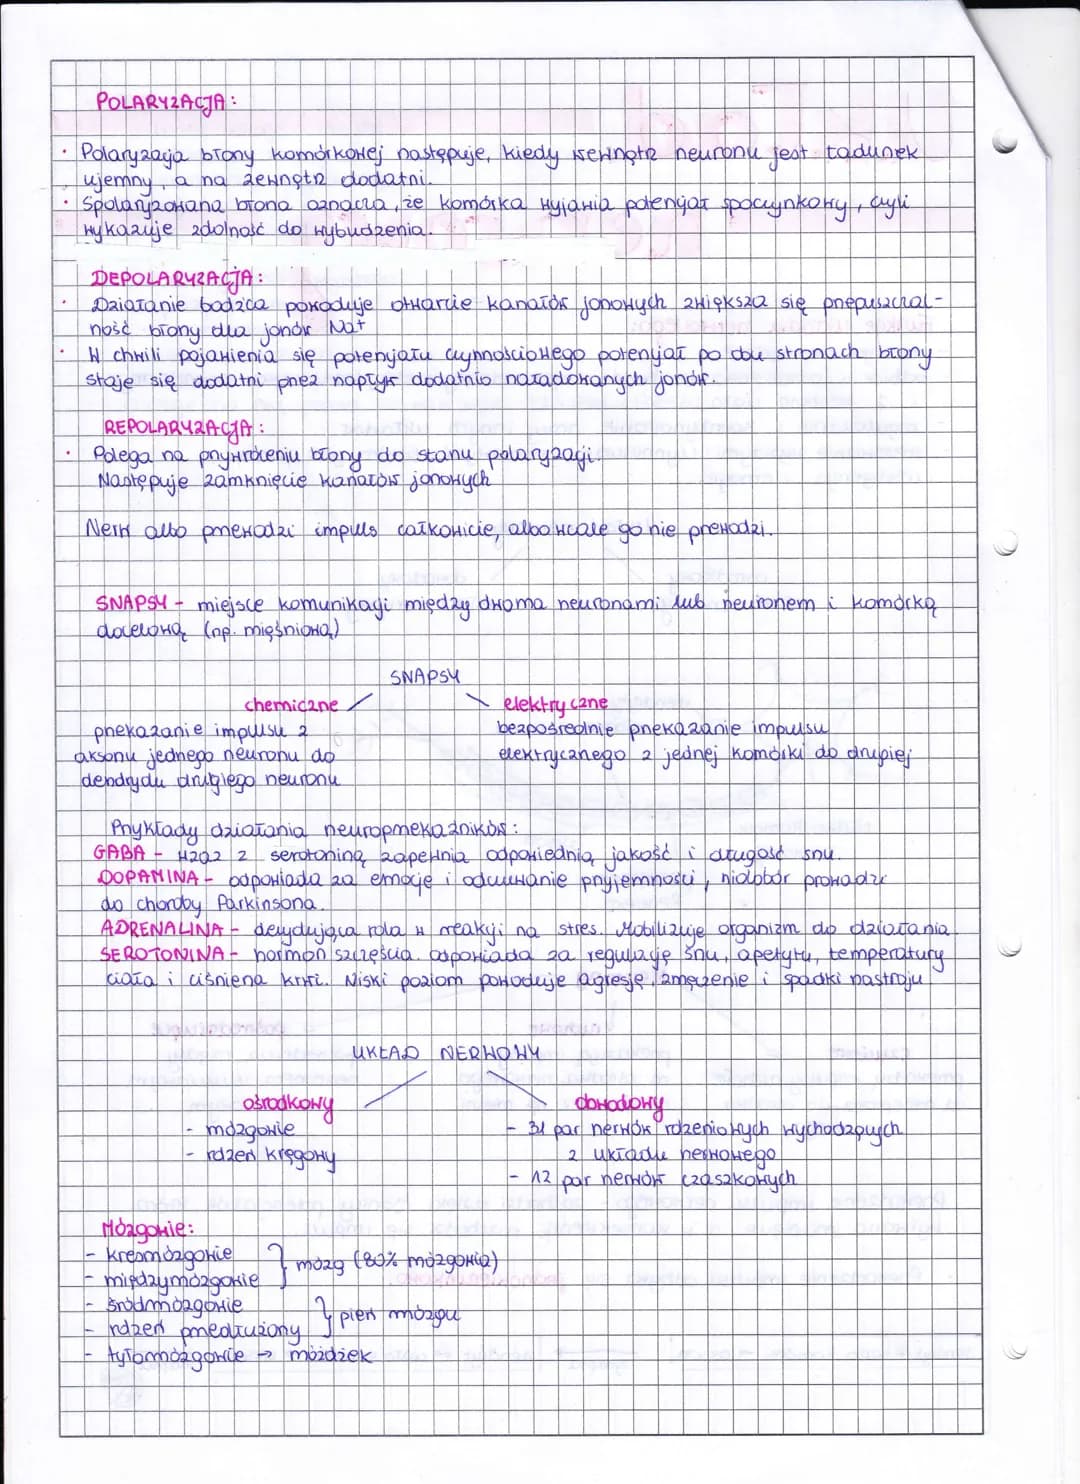 POLARYZACJA:
· Polaryzacja błony komórkowej następuje, kiedy wewnątrz neuronu jest ładunek
ujemny, a na zewnątrz dodatni.
· Spolaryzowana błona oznacza, że komórka wyjawia potencjał spoczynkowy, czyli
wykazuje zdolność do wybudzenia.
DEPOLARYZACJA:
· Działanie bodźca powoduje otwarcie kanałów jonowych zwiększa się przepuszczal-
ność błony dla jonów Na+
· W chwili pojawienia się potencjału czynnościowego potencjał po obu stronach błony
staje się dodatni przez napływ dodatnio naładowanych jonów.
REPOLARYZACJA:
· Polega na przywróceniu błony do stanu polaryzacji.
Następuje zamknięcie kanałów jonowych
Nerw albo przewodzi impuls całkowicie, albo wcale go nie prewodzi.
SNAPSY - miejsce komunikacji między dwoma neuronami lub neuronem i komórką
docelową (np. mięśniową)
SNAPSY
chemiczne elektryczne
przekazanie impulsu z bezpośrednie przekazanie impulsu
aksonu jednego neuronu do elektrycznego z jednej komórki do drugiej
dendrydu drugiego neuronu
Przykłady działania neuroprzekaźników:
GABA - wraz z serotoniną zapewnia odpowiednią jakość i długość snu.
DOPAMINA - odpowiada za emocje i odczuwanie przyjemności, niedobór prowadzi
do choroby Parkinsona.
ADRENALINA - decydująca rola w reakcji na stres. Mobilizuje organizm do działania.
SEROTONINA - hormon szczęścia. odpowiada za regulację snu, apetytu, temperatury
ciała i ciśniena krwi. Niski poziom powoduje agresję, zmęczenie i spadki nastroju
UKŁAD NERWOWY
ośrodkowy obwodowy
- mózgowie - 31 par nerwów rdzeniowych wychodzących
- rdzeń kręgowy z układu nerwowego
- 12 par nerwów czaszkowych
Mózgowie:
- kresomózgowie } mózg (80% mózgowia)
- międzymózgowie
- śródmózgowie } pień mózgu
- rdzeń przedłużony
- tyłomózgowie → móżdżek